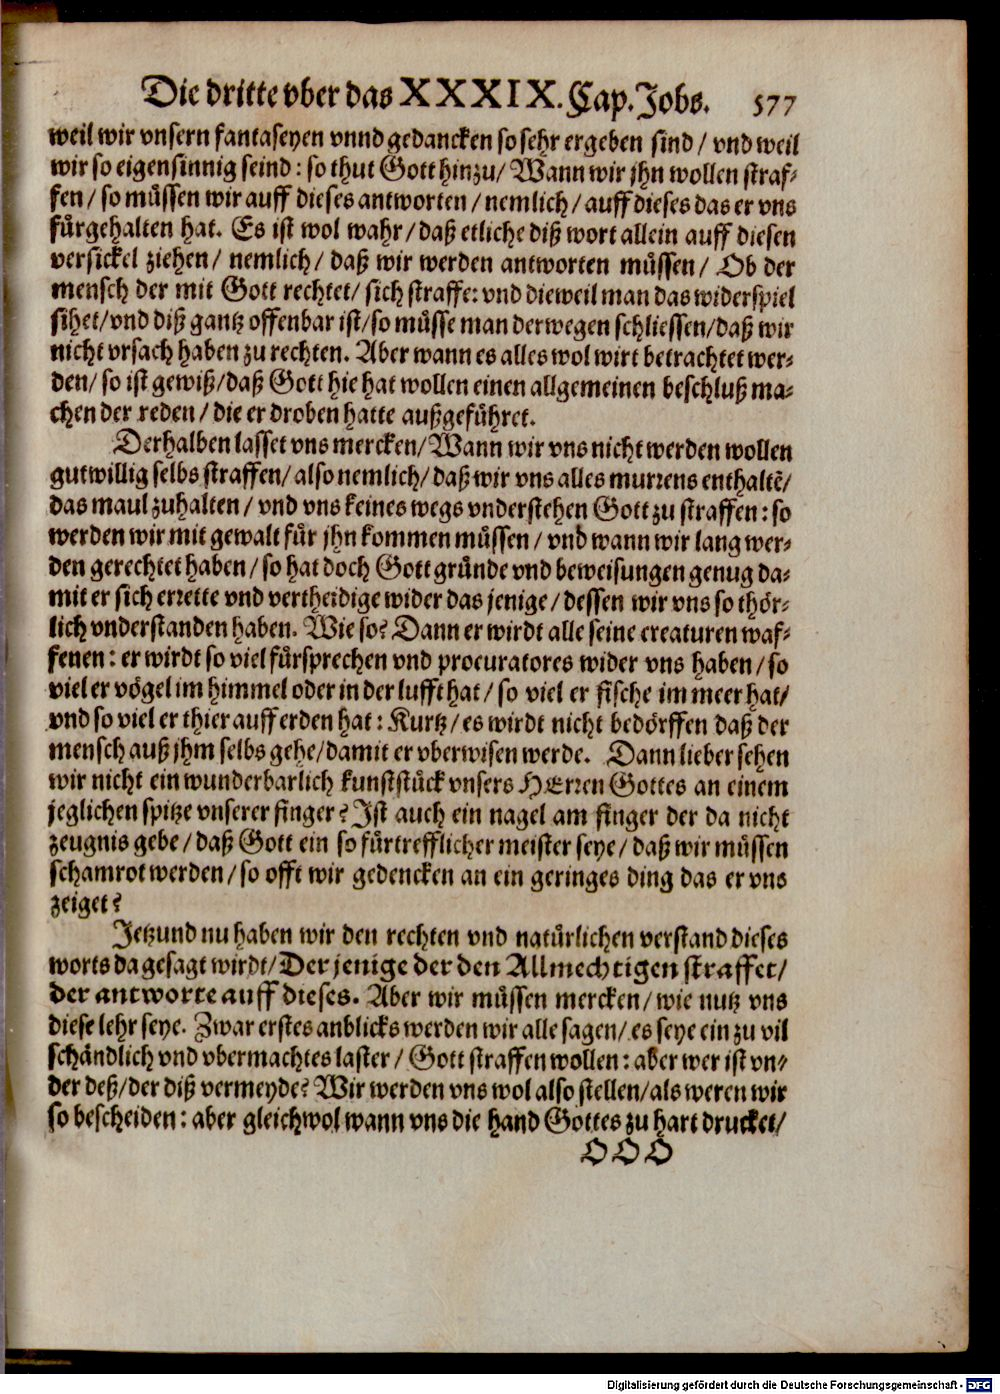 Die dritte vber das XXXIX. Cap. Jobs. 577
weil wir vnsern fantaseyen vnnd gedancken so sehr ergeben sind / vnd weil
wir so eigensinnig seind : so thut Gott hinzu / Wann wir jhn wollen straf-
fen / so müssen wir auff dieses antworten / nemlich / auff dieses das er vns
fürgehalten hat. Es ist wol wahr / daß etliche diß wort allein auff diesen
versickel ziehen / nemlich / daß wir werden antworten müssen / Ob der
mensch der mit Gott rechtet / sich straffe: vnd dieweil man das widerspiel
sihet / vnd diß gantz offenbar ist / so müsse man derwegen schliessen / daß wir
nicht vrsach haben zu rechten. Aber wann es alles wol wirt betrachtet wer-
den / so ist gewiß / daß Gott hie hat wollen einen allgemeinen beschluß ma-
chen der reden / die er droben hatte außgeführet.
Derhalben lasset vns mercken / Wann wir vns nicht werden wollen
gutwillig selbs straffen / also nemlich / daß wir vns alles murrens enthaltẽ /
das maul zuhalten / vnd vns keines wegs vnderstehen Gott zu straffen : so
werden wir mit gewalt für jhn kommen müssen / vnd wann wir lang wer-
den gerechtet haben / so hat doch Gott gründe vnd beweisungen genug da-
mit er sich errette vnd vertheidige wider das jenige / dessen wir vns so thör-
lich vnderstanden haben. Wie so? Dann er wirdt alle seine creaturen waf-
fenen : er wirdt so viel fürsprechen vnd procuratores wider vns haben / so
viel er vögel im himmel oder in der lufft hat / so viel er fische im meer hat /
vnd so viel er thier auff erden hat : Kurtz / es wirdt nicht bedörffen daß der
mensch auß jhm selbs gehe / damit er vberwisen werde. Dann lieber sehen
wir nicht ein wunderbarlich kunststück vnsers HErren Gottes an einem
jeglichen spitze vnserer finger? Ist auch ein nagel am finger der da nicht
zeugnis gebe / daß Gott ein so fürtrefflicher meister seye / daß wir müssen
schamrot werden / so offt wir gedencken an ein geringes ding das er vns
zeiget?
Jetzund nu haben wir den rechten vnd natürlichen verstand dieses
worts da gesagt wirdt / Der jenige der den Allmechtigen straffet /
der antworte auff dieses. Aber wir müssen mercken / wie nutz vns
diese lehr seye. Zwar erstes anblicks werden wir alle sagen / es seye ein zu vil
schändlich vnd vbermachtes laster / Gott straffen wollen : aber wer ist vn-
der deß / der diß vermeyde? Wir werden vns wol also stellen / als weren wir
so bescheiden : aber gleichwol wann vns die hand Gottes zu hart drucket /
OOO
Digitalisierung gefördert durch die Deutsche Forschungsgemeinschaft - DFG